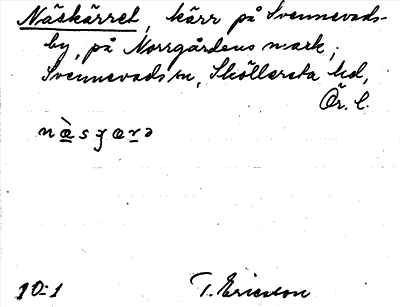 Näskärret, kärr på Svennevads-
by, på Norrgårdens mark,
Svennevads sn, Sköllersta hd,
Ör. l.
10:1 T. Ericsson